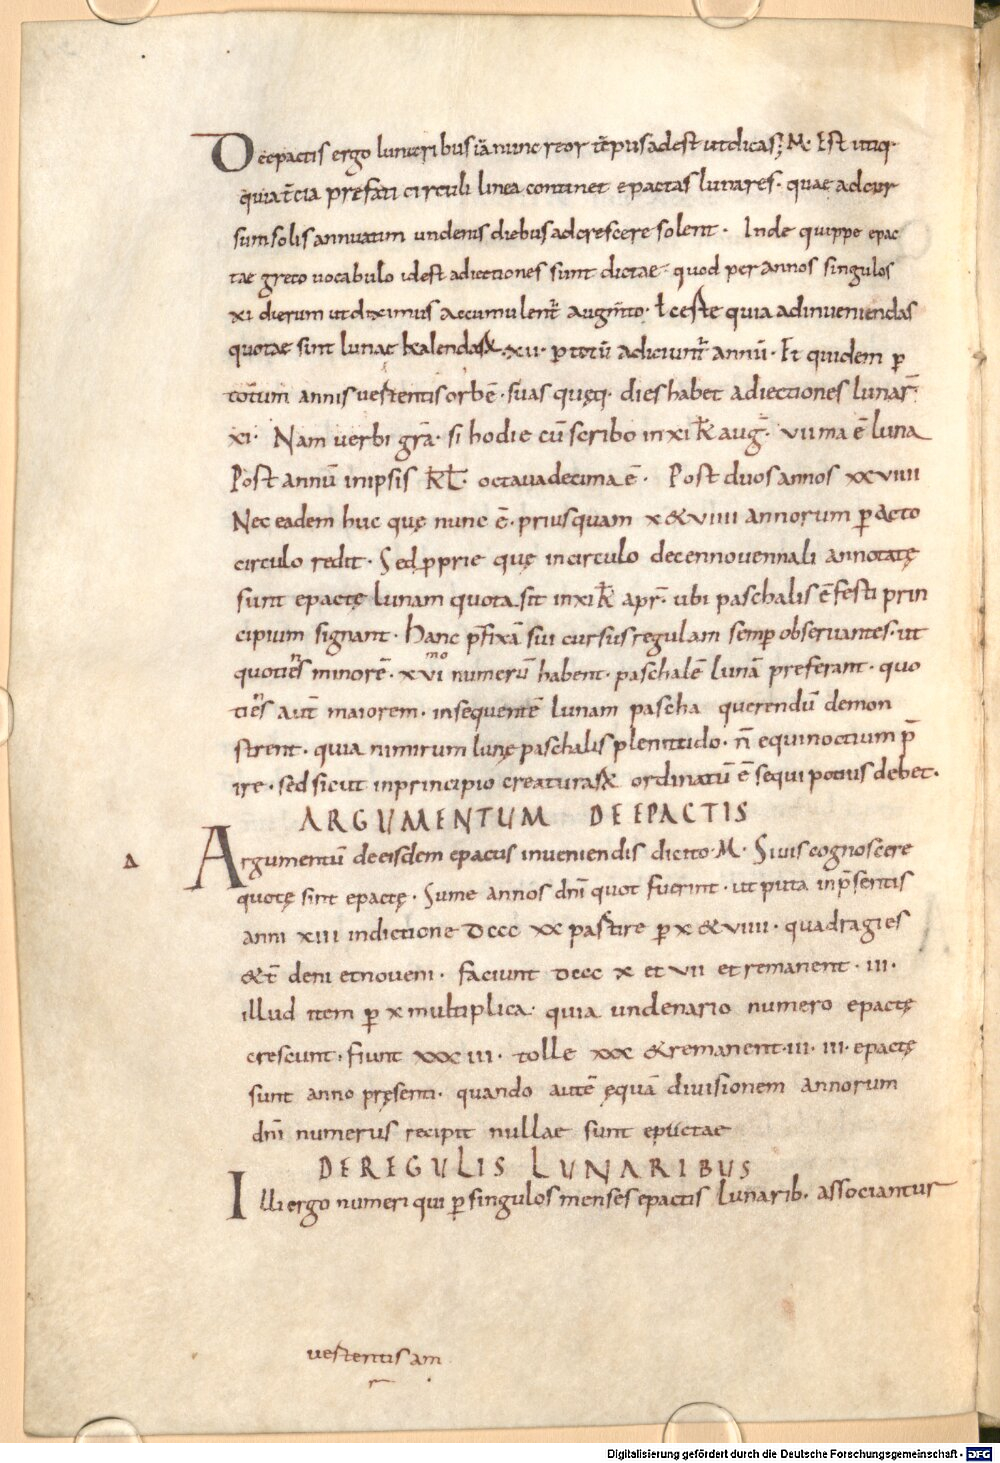 De epactis ergo lunaribus iā nunc reor tēpus adest ut dicas; M· Est utiq·
quia t̄cia prefati circuli linea continet epactas lunares· quae ad cur
sum solis annuatim undenis diebus adcrescere solent· Inde quippe epac
tae greco uocabulo idest adiectiones sunt dictae· quod per annos singulos
xi dierum ut diximus accumulent̄ augm̄to· ł certe quia ad inueniendas
quotae sint lunae kalendaꝝ·xii· ꝑ totū adiciunt̄ annū· Et quidem ꝑ
totum annis uertentis orbē· suas quęq· dies habet adiectiones lunar̄·
xi· Nam uerbi grā· si hodie cū scribo in xi k̄ auḡ· vii ma ē luna
Post annū in ipsis k̄l̄· octaua decima ē· Post duos annos xxviiii
Nec eadem huc quę nunc ē· priusquam x & viiii annorum ꝑacto
circulo redit· Sed ꝓprie quę in circulo decennouennali annotatę
sunt epactę lunam quota sit in xi k̄ apr̄· ubi paschalis ē festi prin
cipium signant· Hanc p̄fixā sui cursus regulam semꝑ obseruantes· ut
quotiēs minorē· xvi mo numerū habent· paschalē lunā preferant· quo
tiēs aut̄ maiorem· insequentē lunam pascha querendū demon
strent· quia nimirum lunę paschalis plenitudo· n̄ equinoctium p̄
ire· sed sicut in principio creaturaꝝ ordinatū ē sequi potius debet·
ARGUMENTUM DE EPACTIS
Δ Argumentū de eisdem epactis inueniendis dicito· M· Si uis cognoscere
quotę sint epactę· Sume annos dn̄i quot fuerint· ut puta in p̄sentis
anni xiii indictione dccc xx partire ꝑ x & viiii· quadragies
& t̄ deni et noueni· faciunt dccc x et vii et remanent· iii·
illud item ꝑ x multiplica· quia undenario numero epactę
crescunt· fiunt xxx iii· tolle xxx & remanent·iii· iii· epactę
sunt anno pręsenti· quando autē ęquā diuisionem annorum
dn̄i numerus recipit nullae sunt epactae
DE REGULIS LUNARIBUS
Illi ergo numeri qui ꝑ singulos menses epactis lunarib· associantur
uertentis am
Digitalisierung gefördert durch die Deutsche Forschungsgemeinschaft - DFG